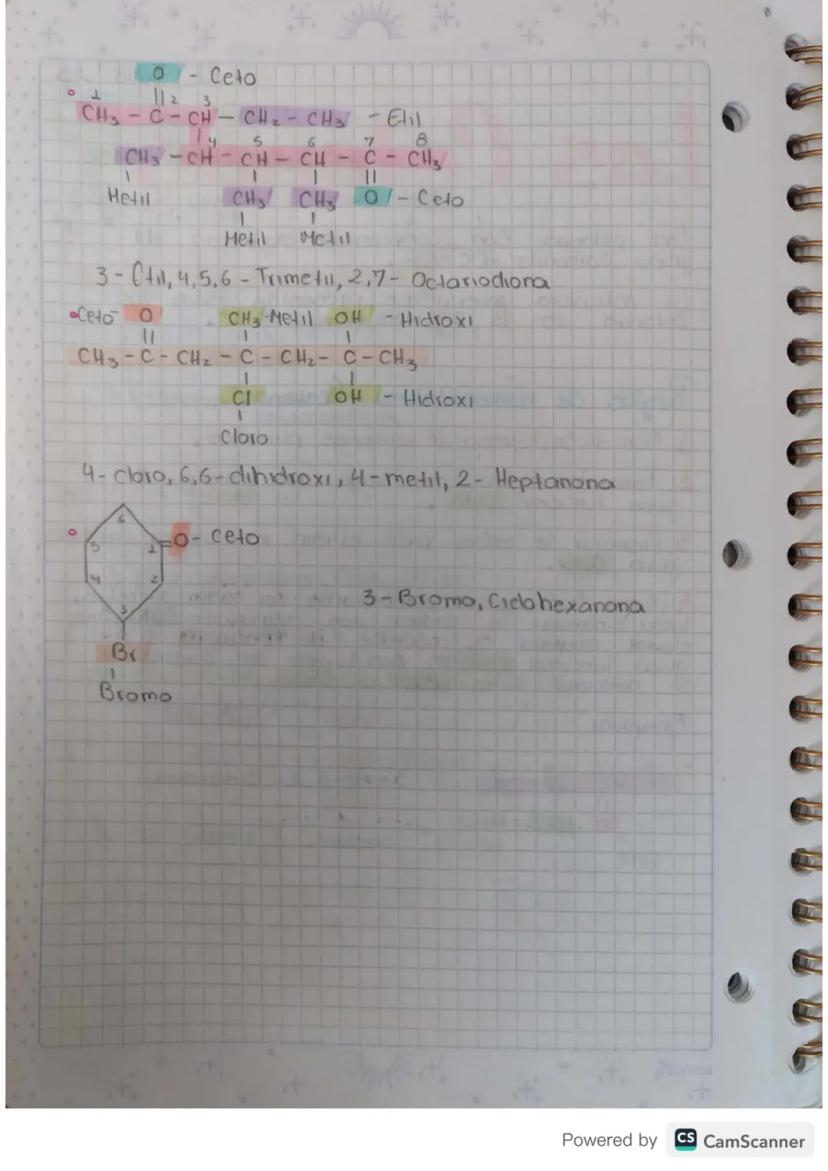 O - Ceto
1 || 2 3
CH₃ - C - CH - CH₂ - CH₃ - Etil
4 5 6 7 8
CH₃ - CH - CH - CH - C - CH₃
Metil CH₃ CH₃ O - Ceto
Metil Metil
3 - Etil, 4, 5, 6 - Trimetil, 2, 7 - Octanodiona
Ceto - O CH₃ - Metil OH - Hidroxi
CH₃ - C - CH₂ - C - CH₂ - C - CH₃
Cl OH - Hidroxi
Cloro
4 - cloro, 6,6 - dihidroxi, 4 - metil, 2 - Heptanona
6
5 1 = O - ceto
4 2
3
3 - Bromo, Ciclohexanona
Br
Bromo
Powered by CS CamScanner